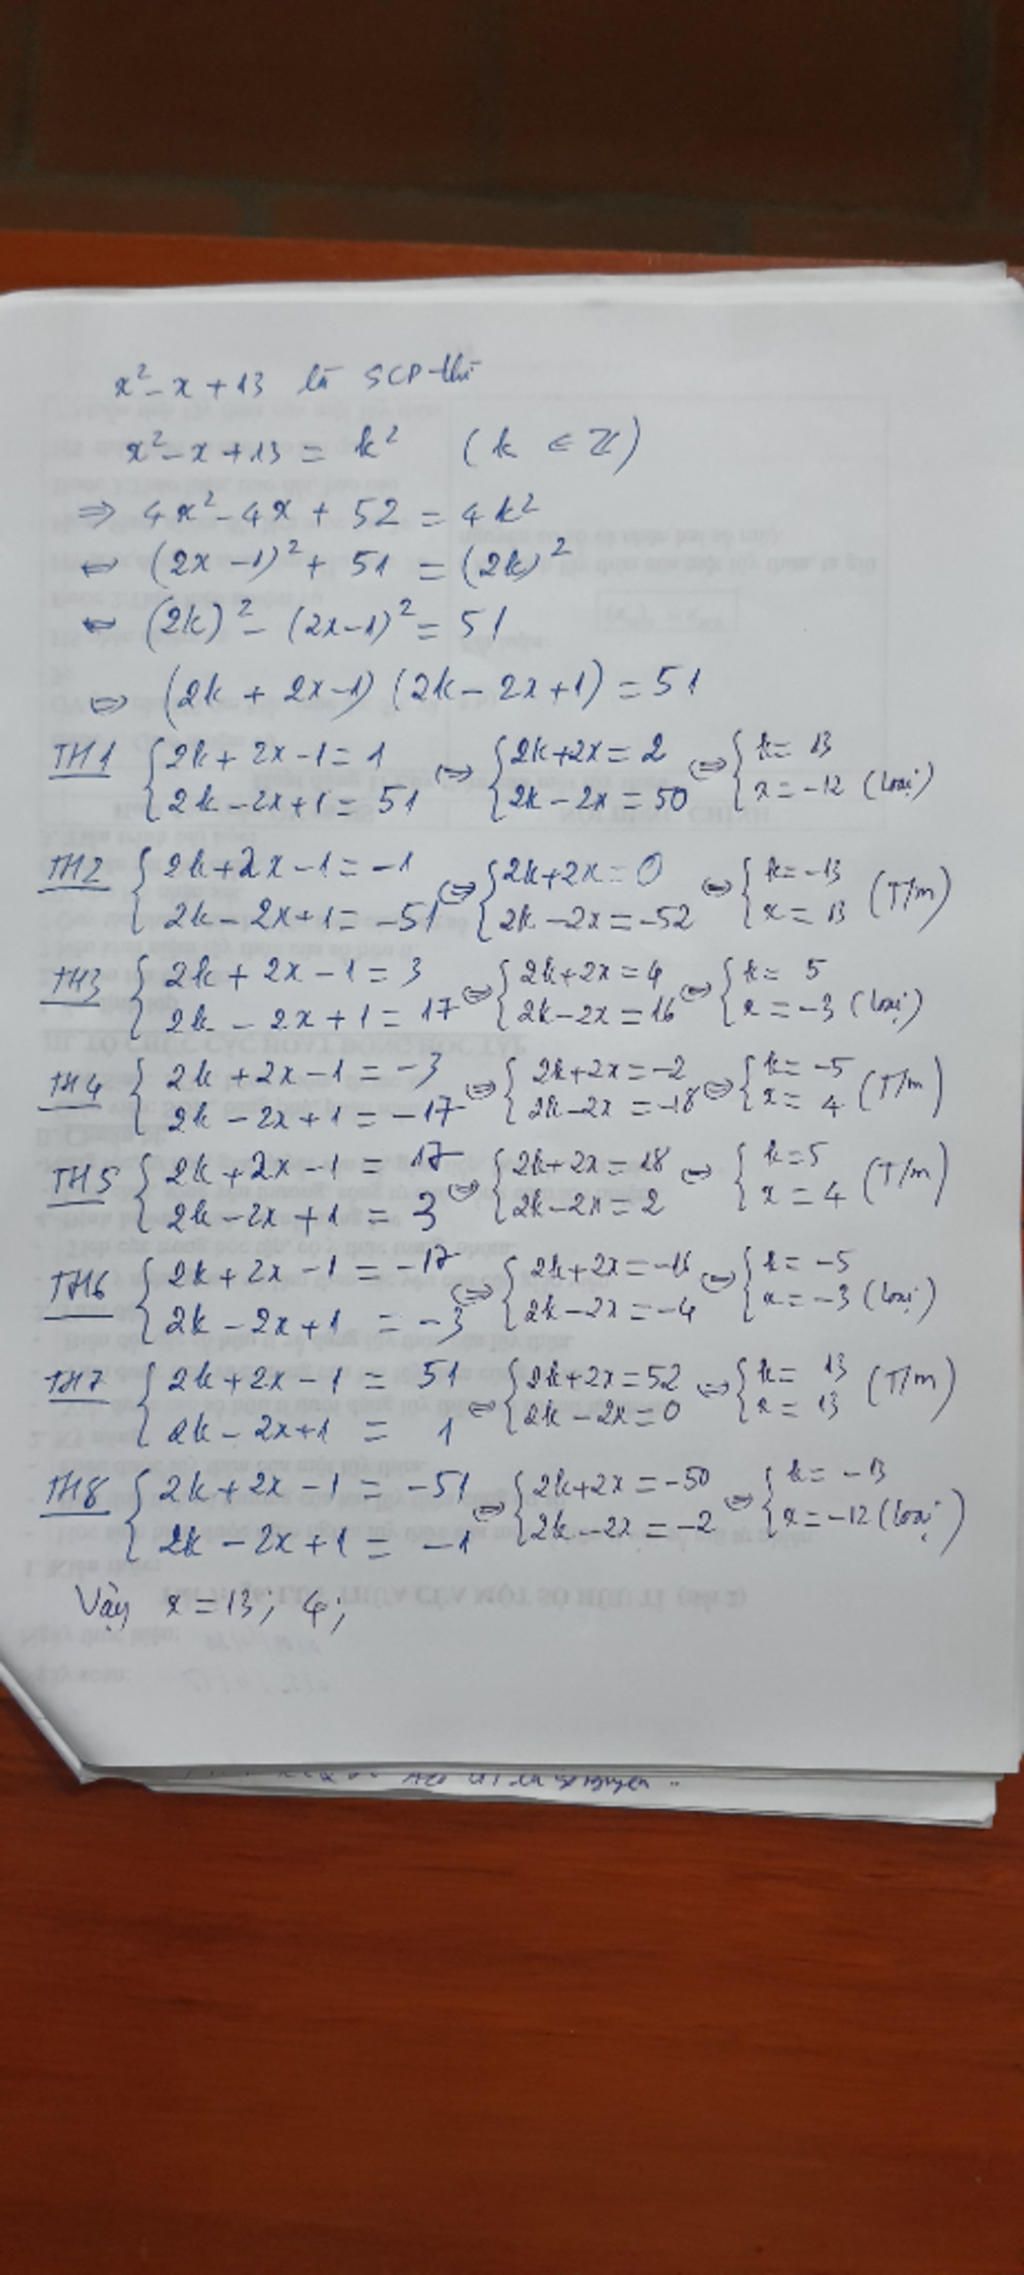 x² - x + 13 là SCP thì
x² - x + 13 = k² (k ∈ Z)
⇒ 4x² - 4x + 52 = 4k²
⇔ (2x - 1)² + 51 = (2k)²
⇔ (2k)² - (2x - 1)² = 51
⇔ (2k + 2x - 1) (2k - 2x + 1) = 51
TH1 { 2k + 2x - 1 = 1 ; 2k - 2x + 1 = 51 ⇔ { 2k + 2x = 2 ; 2k - 2x = 50 ⇔ { k = 13 ; x = -12 (loại)
TH2 { 2k + 2x - 1 = -1 ; 2k - 2x + 1 = -51 ⇔ { 2k + 2x = 0 ; 2k - 2x = -52 ⇔ { k = -13 ; x = 13 (T/m)
TH3 { 2k + 2x - 1 = 3 ; 2k - 2x + 1 = 17 ⇔ { 2k + 2x = 4 ; 2k - 2x = 16 ⇔ { k = 5 ; x = -3 (loại)
TH4 { 2k + 2x - 1 = -3 ; 2k - 2x + 1 = -17 ⇔ { 2k + 2x = -2 ; 2k - 2x = -18 ⇔ { k = -5 ; x = 4 (T/m)
TH5 { 2k + 2x - 1 = 17 ; 2k - 2x + 1 = 3 ⇔ { 2k + 2x = 18 ; 2k - 2x = 2 ⇔ { k = 5 ; x = 4 (T/m)
TH6 { 2k + 2x - 1 = -17 ; 2k - 2x + 1 = -3 ⇔ { 2k + 2x = -16 ; 2k - 2x = -4 ⇔ { k = -5 ; x = -3 (loại)
TH7 { 2k + 2x - 1 = 51 ; 2k - 2x + 1 = 1 ⇔ { 2k + 2x = 52 ; 2k - 2x = 0 ⇔ { k = 13 ; x = 13 (T/m)
TH8 { 2k + 2x - 1 = -51 ; 2k - 2x + 1 = -1 ⇔ { 2k + 2x = -50 ; 2k - 2x = -2 ⇔ { k = -13 ; x = -12 (loại)
Vậy x = 13; 4;